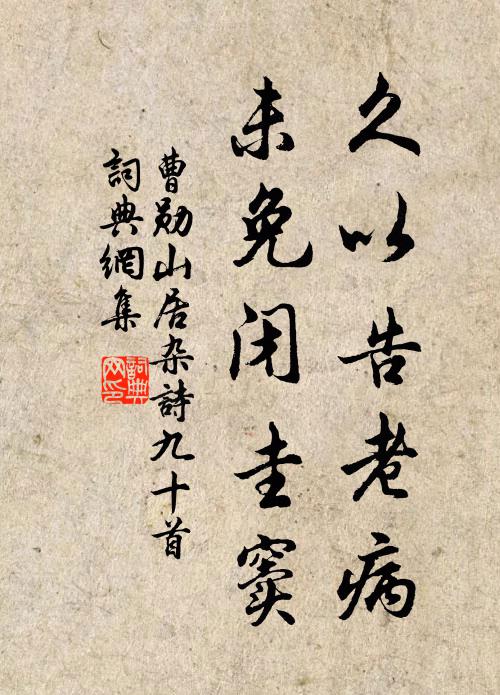 久以告老病
未免闭圭窦
曹勋山居杂詩九十首
詞典網集
詞典網印